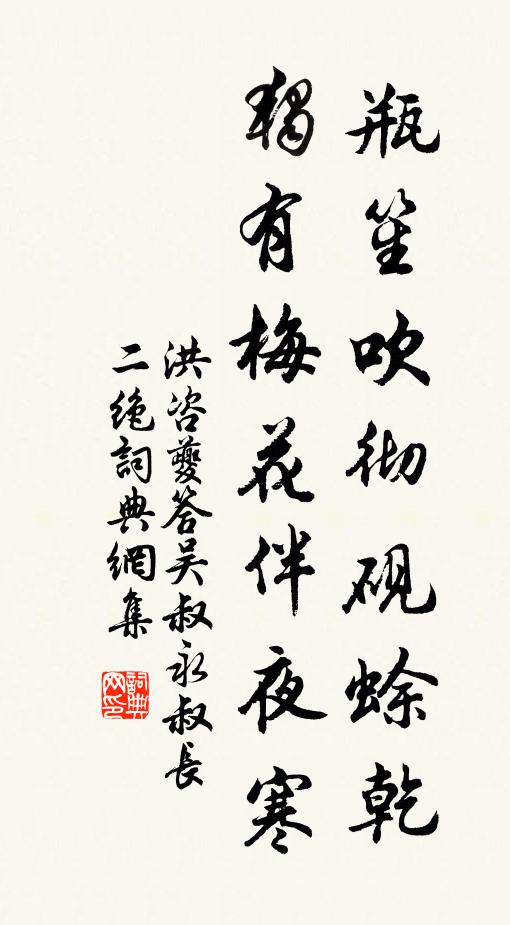 瓶笙吹彻硯蜍乾
獨有梅花伴夜寒
洪咨夔答吴叔永叔長
二絶詞典網集
詞典网印